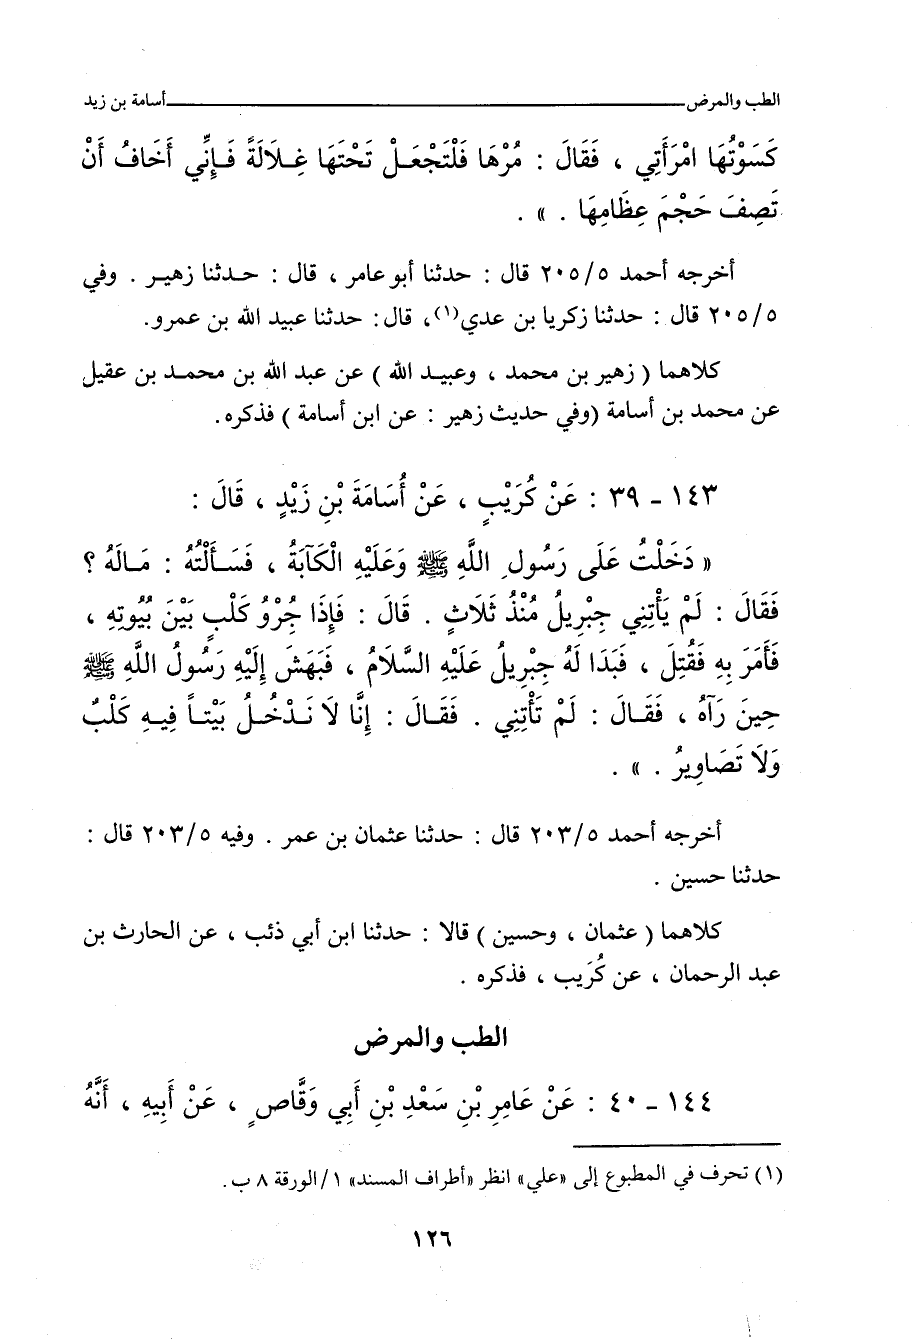 الطب والمرض ــــــــــــــــــــ أسامة بن زيد
كَسَوْتُهَا امْرَأَتِي ، فَقَالَ : مُرْهَا فَلْتَجْعَـلْ تَحْتَهَا غِـلَالَةً فَـإِنِّي أَخَافُ أَنْ
تَصِفَ حَجْمَ عِظَامِهَا . » .
أخرجه أحمد ٢٠٥/٥ قال : حدثنا أبو عامر ، قال : حـدثنا زهيـر . وفي
٢٠٥/٥ قال : حدثنا زكريا بن عدي(١)، قال: حدثنا عبيد الله بن عمرو.
كلاهما ( زهير بن محمد ، وعبيـد الله ) عن عبد الله بن محمـد بن عقيل
عن محمد بن أسامة (وفي حديث زهير : عن ابن أسامة ) فذكره.
١٤٣ - ٣٩ : عَنْ كُرَيْبٍ ، عَنْ أُسَامَةَ بْنِ زَيْدٍ ، قَالَ :
« دَخَلْتُ عَلَى رَسُولِ اللَّهِ ﷺ وَعَلَيْهِ الْكَآبَةُ ، فَسَـأَلْتُهُ : مَـالَهُ ؟
فَقَالَ : لَمْ يَأْتِنِي جِبْرِيلُ مُنْذُ ثَلَاثٍ . قَالَ : فَإِذَا جُرْوُ كَلْبٍ بَيْنَ بُيُوتِهِ ،
فَأَمَرَ بِهِ فَقُتِلَ ، فَبَدَا لَهُ جِبْرِيلُ عَلَيْهِ السَّلَامُ ، فَبَهَشَ إِلَيْهِ رَسُولُ اللَّهِ ﷺ
حِينَ رَآهُ ، فَقَـالَ : لَمْ تَأْتِنِي . فَقَـالَ : إِنَّا لَا نَـدْخُـلُ بَيْتـاً فِيـهِ كَلْبٌ
وَلَا تَصَاوِيرُ . » .
أخرجه أحمد ٢٠٣/٥ قال : حدثنا عثمان بن عمر . وفيه ٢٠٣/٥ قال :
حدثنا حسين .
كلاهما ( عثمان ، وحسين ) قالا : حدثنا ابن أبي ذئب ، عن الحارث بن
عبد الرحمان ، عن كُرَيب ، فذكره .
الطب والمرض
١٤٤ - ٤٠ : عَنْ عَامِرِ بْنِ سَعْدِ بْنِ أَبِي وَقَّاصٍ ، عَنْ أَبِيهِ ، أَنَّهُ
(١) تحرف في المطبوع إلى «علي» انظر «أطراف المسند» ١/الورقة ٨ ب.
١٢٦